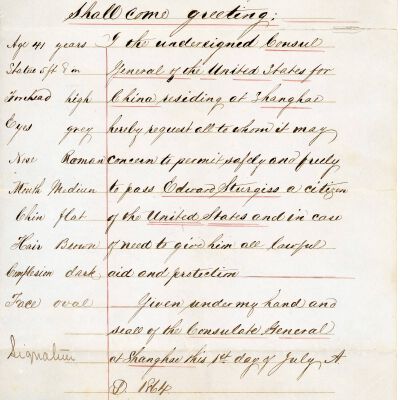 Shall come greeting:
Age 41 years I the undersigned Consul
Statue 5 ft 8 in General of the United States for
Forehead high China residing at Shanghae
Eyes grey hereby request all to whom it may
Nose Roman concern to permit safely and freely
Mouth Medium to pass Edward Sturgiss a citizen
Chin flat of the United States and in case
Hair Brown of need to give him all lawful
Complexion dark aid and protection
Face oval Given under my hand and
seal of the Consulate General
Signature at Shanghae this 1st day of July A
D. 1864.